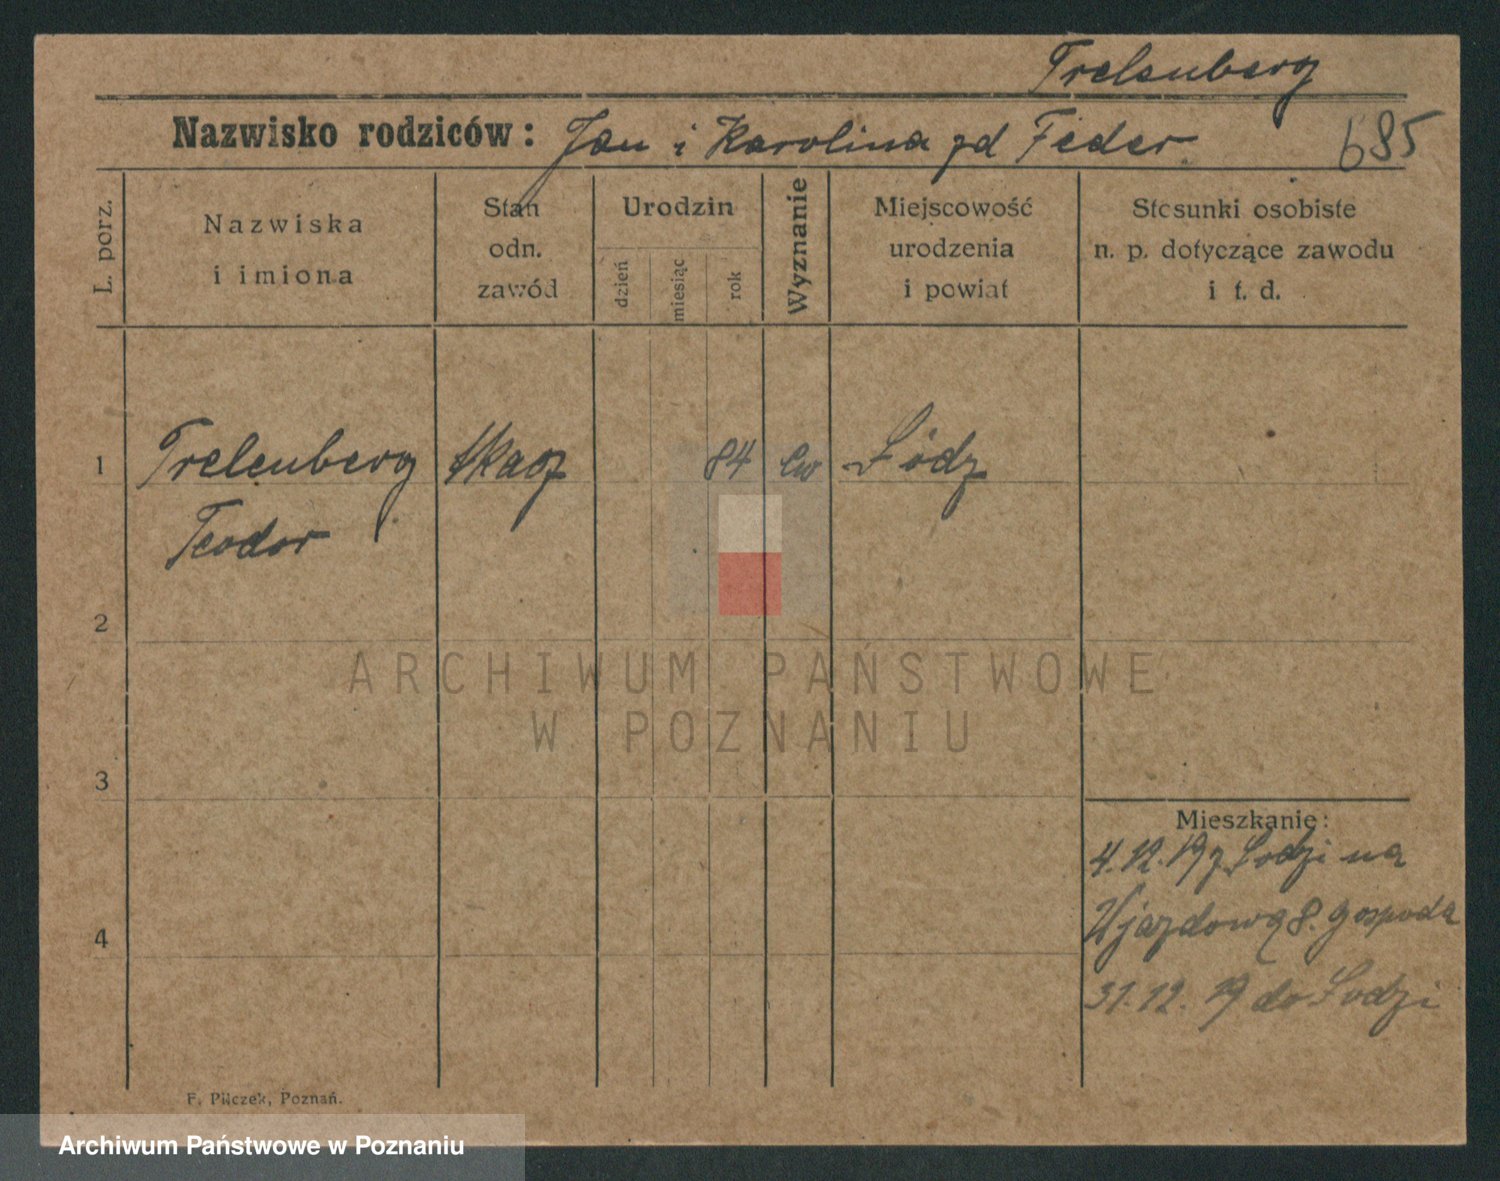 Trelenberg
Nazwisko rodziców: Jan i Karolina zd Feder 685
L. porz.
Nazwiska
i imiona
Stan
odn.
zawód
Urodzin
dzień
miesiąc
rok
Wyznanie
Miejscowość
urodzenia
i powiat
Stosunki osobiste
n. p. dotyczące zawodu
i t. d.
1 Trelenberg tkacz 84 ew Łódz
Teodor
2
ARCHIWUM PAŃSTWOWE
W POZNANIU
3
Mieszkanie:
4.12.19 z Łodzi na
Wjazdową 8. Gospoda
4
31.12.19 do Łodzi
F. Pilczek, Poznań.
Archiwum Państwowe w Poznaniu